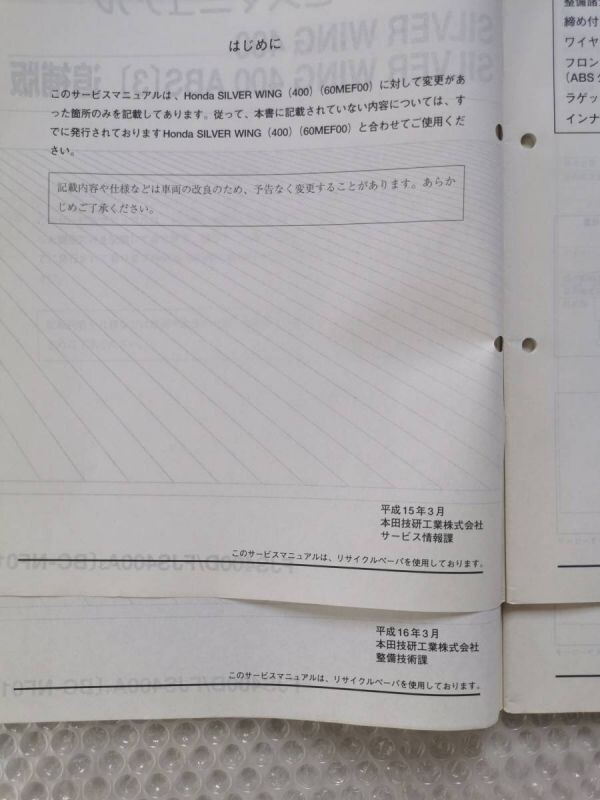 はじめに
このサービスマニュアルは、Honda SILVER WING（400）(60MEF00）に対して変更があ
った箇所のみを記載してあります。従って、本書に記載されていない内容については、す
でに発行されておりますHonda SILVER WING（400）(60MEF00）と合わせてご使用くだ
さい。
記載内容や仕様などは車両の改良のため、予告なく変更することがあります。あらか
じめご了承ください。
平成15年3月
本田技研工業株式会社
サービス情報課
このサービスマニュアルは、リサイクルペーパを使用しております。
平成16年3月
本田技研工業株式会社
整備技術課
このサービスマニュアルは、リサイクルペーパを使用しております。
締め付
ワイヤ
フロン
（ABS
ラゲッ
インナ